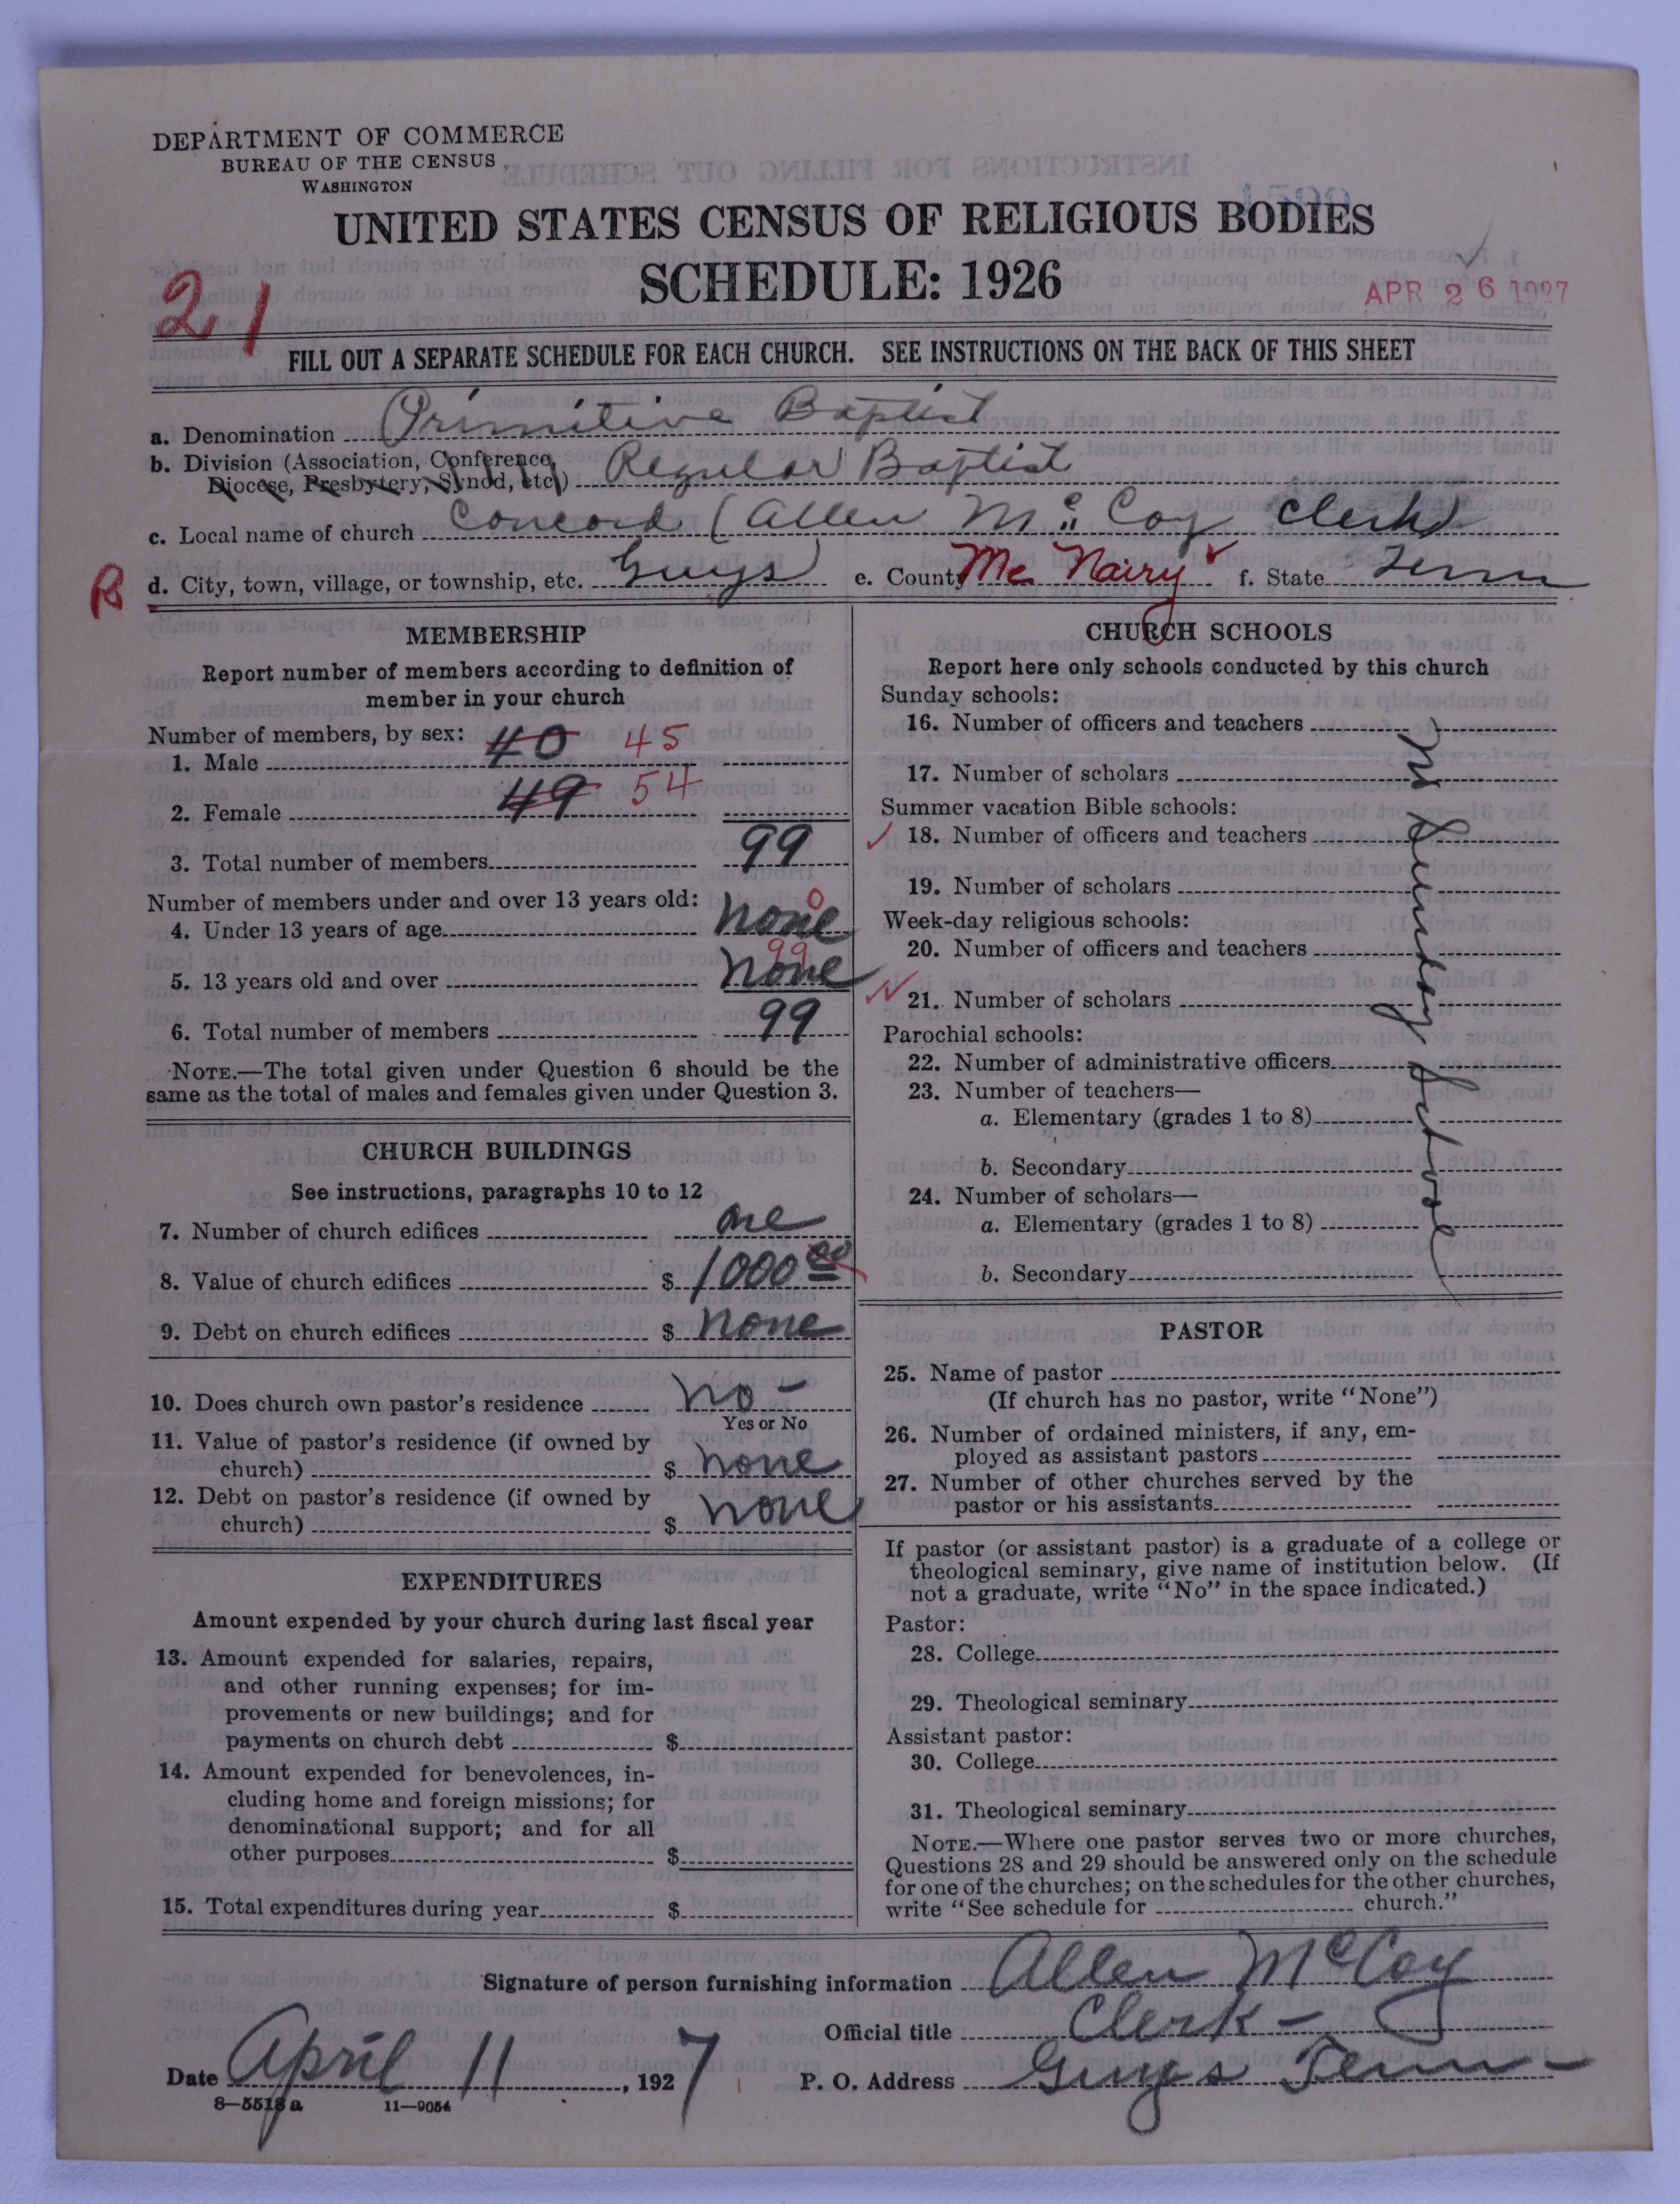 DEPARTMENT OF COMMERCE
BUREAU OF THE CENSUS
WASHINGTON
UNITED STATES CENSUS OF RELIGIOUS BODIES
SCHEDULE: 1926
21
APR 26 1927
FILL OUT A SEPARATE SCHEDULE FOR EACH CHURCH. SEE INSTRUCTIONS ON THE BACK OF THIS SHEET
a. Denomination Primitive Baptist
b. Division (Association, Conference, Diocese, Presbytery, Synod, etc.) Regular Baptist
c. Local name of church Concord (Allen McCoy Clerk)
B
d. City, town, village, or township, etc. Guys e. County Mc Nairy f. State Tenn
MEMBERSHIP
Report number of members according to definition of
member in your church
Number of members, by sex:
1. Male 40 45
2. Female 49 54
3. Total number of members 99
Number of members under and over 13 years old:
4. Under 13 years of age none 0
5. 13 years old and over none 99
6. Total number of members 99
NOTE.—The total given under Question 6 should be the
same as the total of males and females given under Question 3.
CHURCH BUILDINGS
See instructions, paragraphs 10 to 12
7. Number of church edifices one
8. Value of church edifices $ 1000 00
9. Debt on church edifices $ none
10. Does church own pastor's residence no -
Yes or No
11. Value of pastor's residence (if owned by
church) $ none
12. Debt on pastor's residence (if owned by
church) $ none
EXPENDITURES
Amount expended by your church during last fiscal year
13. Amount expended for salaries, repairs,
and other running expenses; for im-
provements or new buildings; and for
payments on church debt $
14. Amount expended for benevolences, in-
cluding home and foreign missions; for
denominational support; and for all
other purposes $
15. Total expenditures during year $
CHURCH SCHOOLS
Report here only schools conducted by this church
Sunday schools:
16. Number of officers and teachers
17. Number of scholars
Summer vacation Bible schools:
18. Number of officers and teachers
19. Number of scholars
Week-day religious schools:
20. Number of officers and teachers
21. Number of scholars
Parochial schools:
22. Number of administrative officers
23. Number of teachers—
a. Elementary (grades 1 to 8)
b. Secondary
24. Number of scholars—
a. Elementary (grades 1 to 8)
b. Secondary
no Sunday School
PASTOR
25. Name of pastor
(If church has no pastor, write "None")
26. Number of ordained ministers, if any, em-
ployed as assistant pastors
27. Number of other churches served by the
pastor or his assistants
If pastor (or assistant pastor) is a graduate of a college or
theological seminary, give name of institution below. (If
not a graduate, write "No" in the space indicated.)
Pastor:
28. College
29. Theological seminary
Assistant pastor:
30. College
31. Theological seminary
NOTE.—Where one pastor serves two or more churches,
Questions 28 and 29 should be answered only on the schedule
for one of the churches; on the schedules for the other churches,
write "See schedule for church."
Signature of person furnishing information Allen McCoy
Official title Clerk -
Date April 11, 1927 P. O. Address Guys Tenn -
8—5518a 11—9054